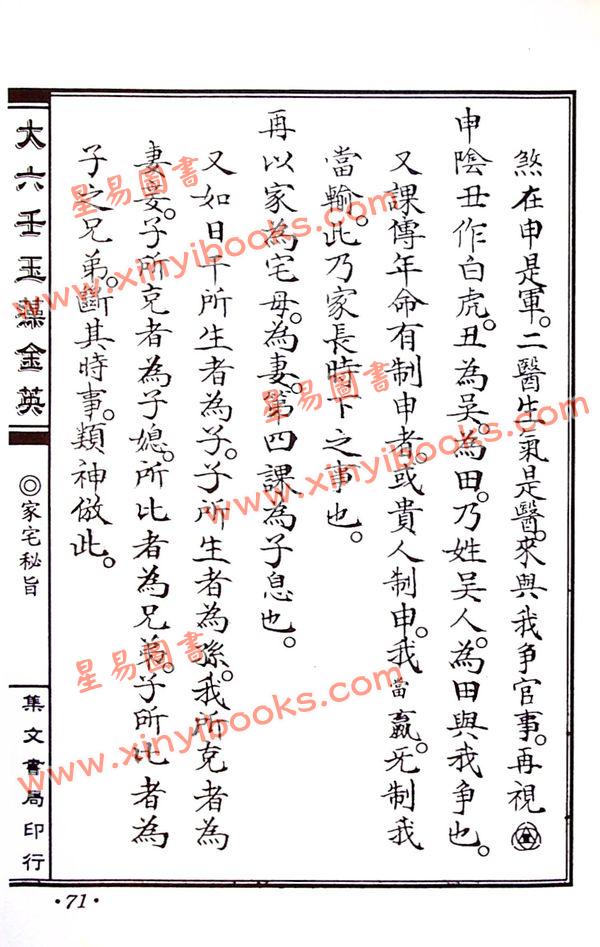 煞在申是軍。二醫生氣是醫。來與我争官事。再視
申陰丑作白虎。丑為吴。為田。乃姓吴人。為田與我争也。
又課傳年命有制申者。或貴人制申。我當贏。无制我
當輸。此乃家長時下之事也。
再以家為宅母。為妻。第四課為子息也。
又如日干所生者為子。子所生者為孫。我所克者為
妻妾。子所克者為子媳。所比者為兄弟。子所比者為
子之兄弟。斷其時事。類神倣此。
大六壬玉藻金英
◎家宅秘旨
集文書局印行
·71·
星易圖書
www.xinyibooks.com
星易圖書
www.xinyibooks.com
星易圖書
www.xinyibooks.com